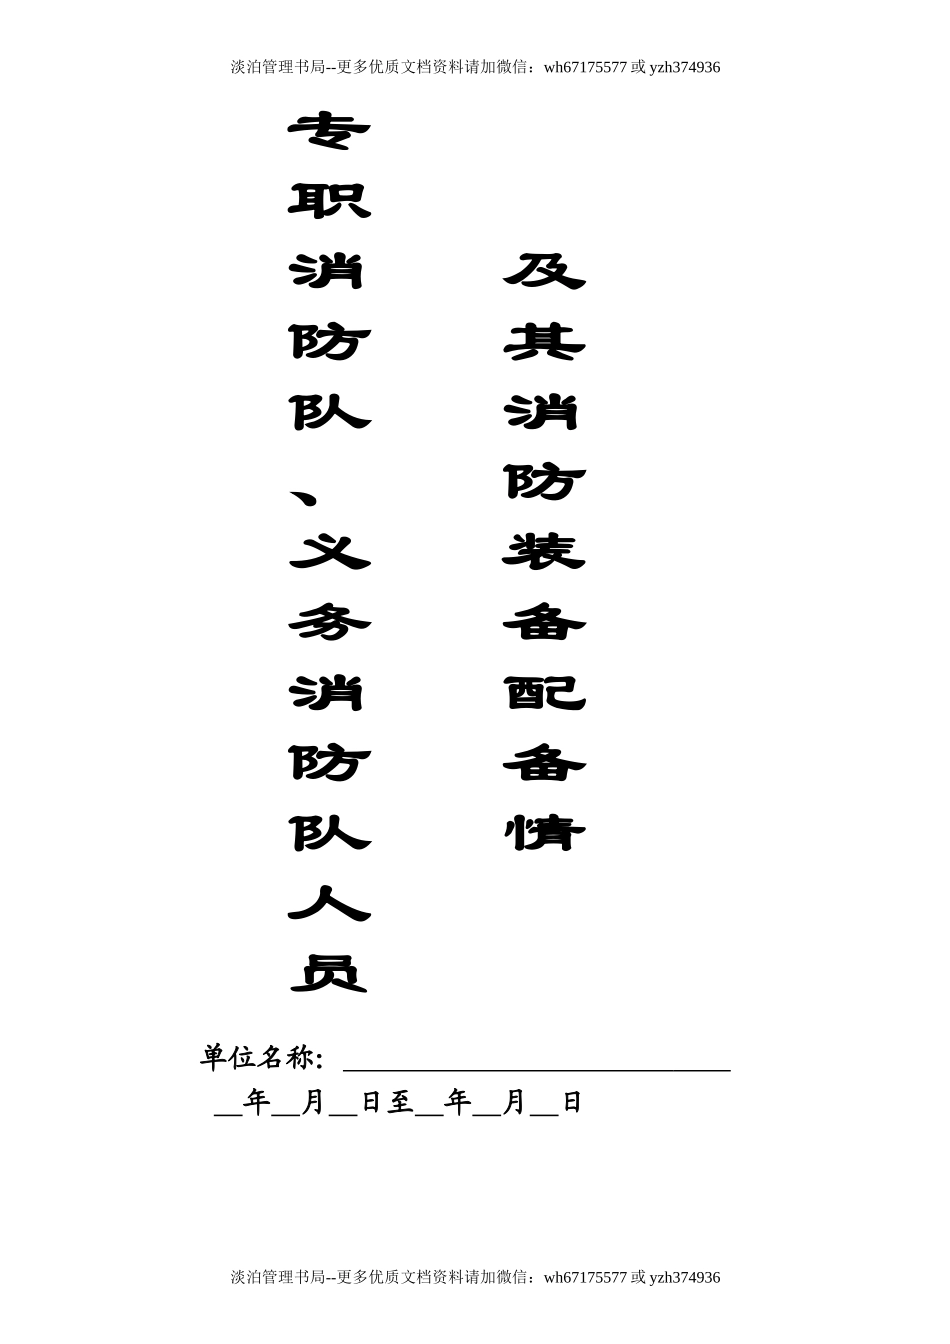 淡泊管理书局--更多优质文档资料请加微信：wh67175577 或 yzh374936
专职消防队、义务消防队人员
及其消防装备配备情
单位名称：___________________________
__年__月__日至__年__月__日
淡泊管理书局--更多优质文档资料请加微信：wh67175577 或 yzh374936